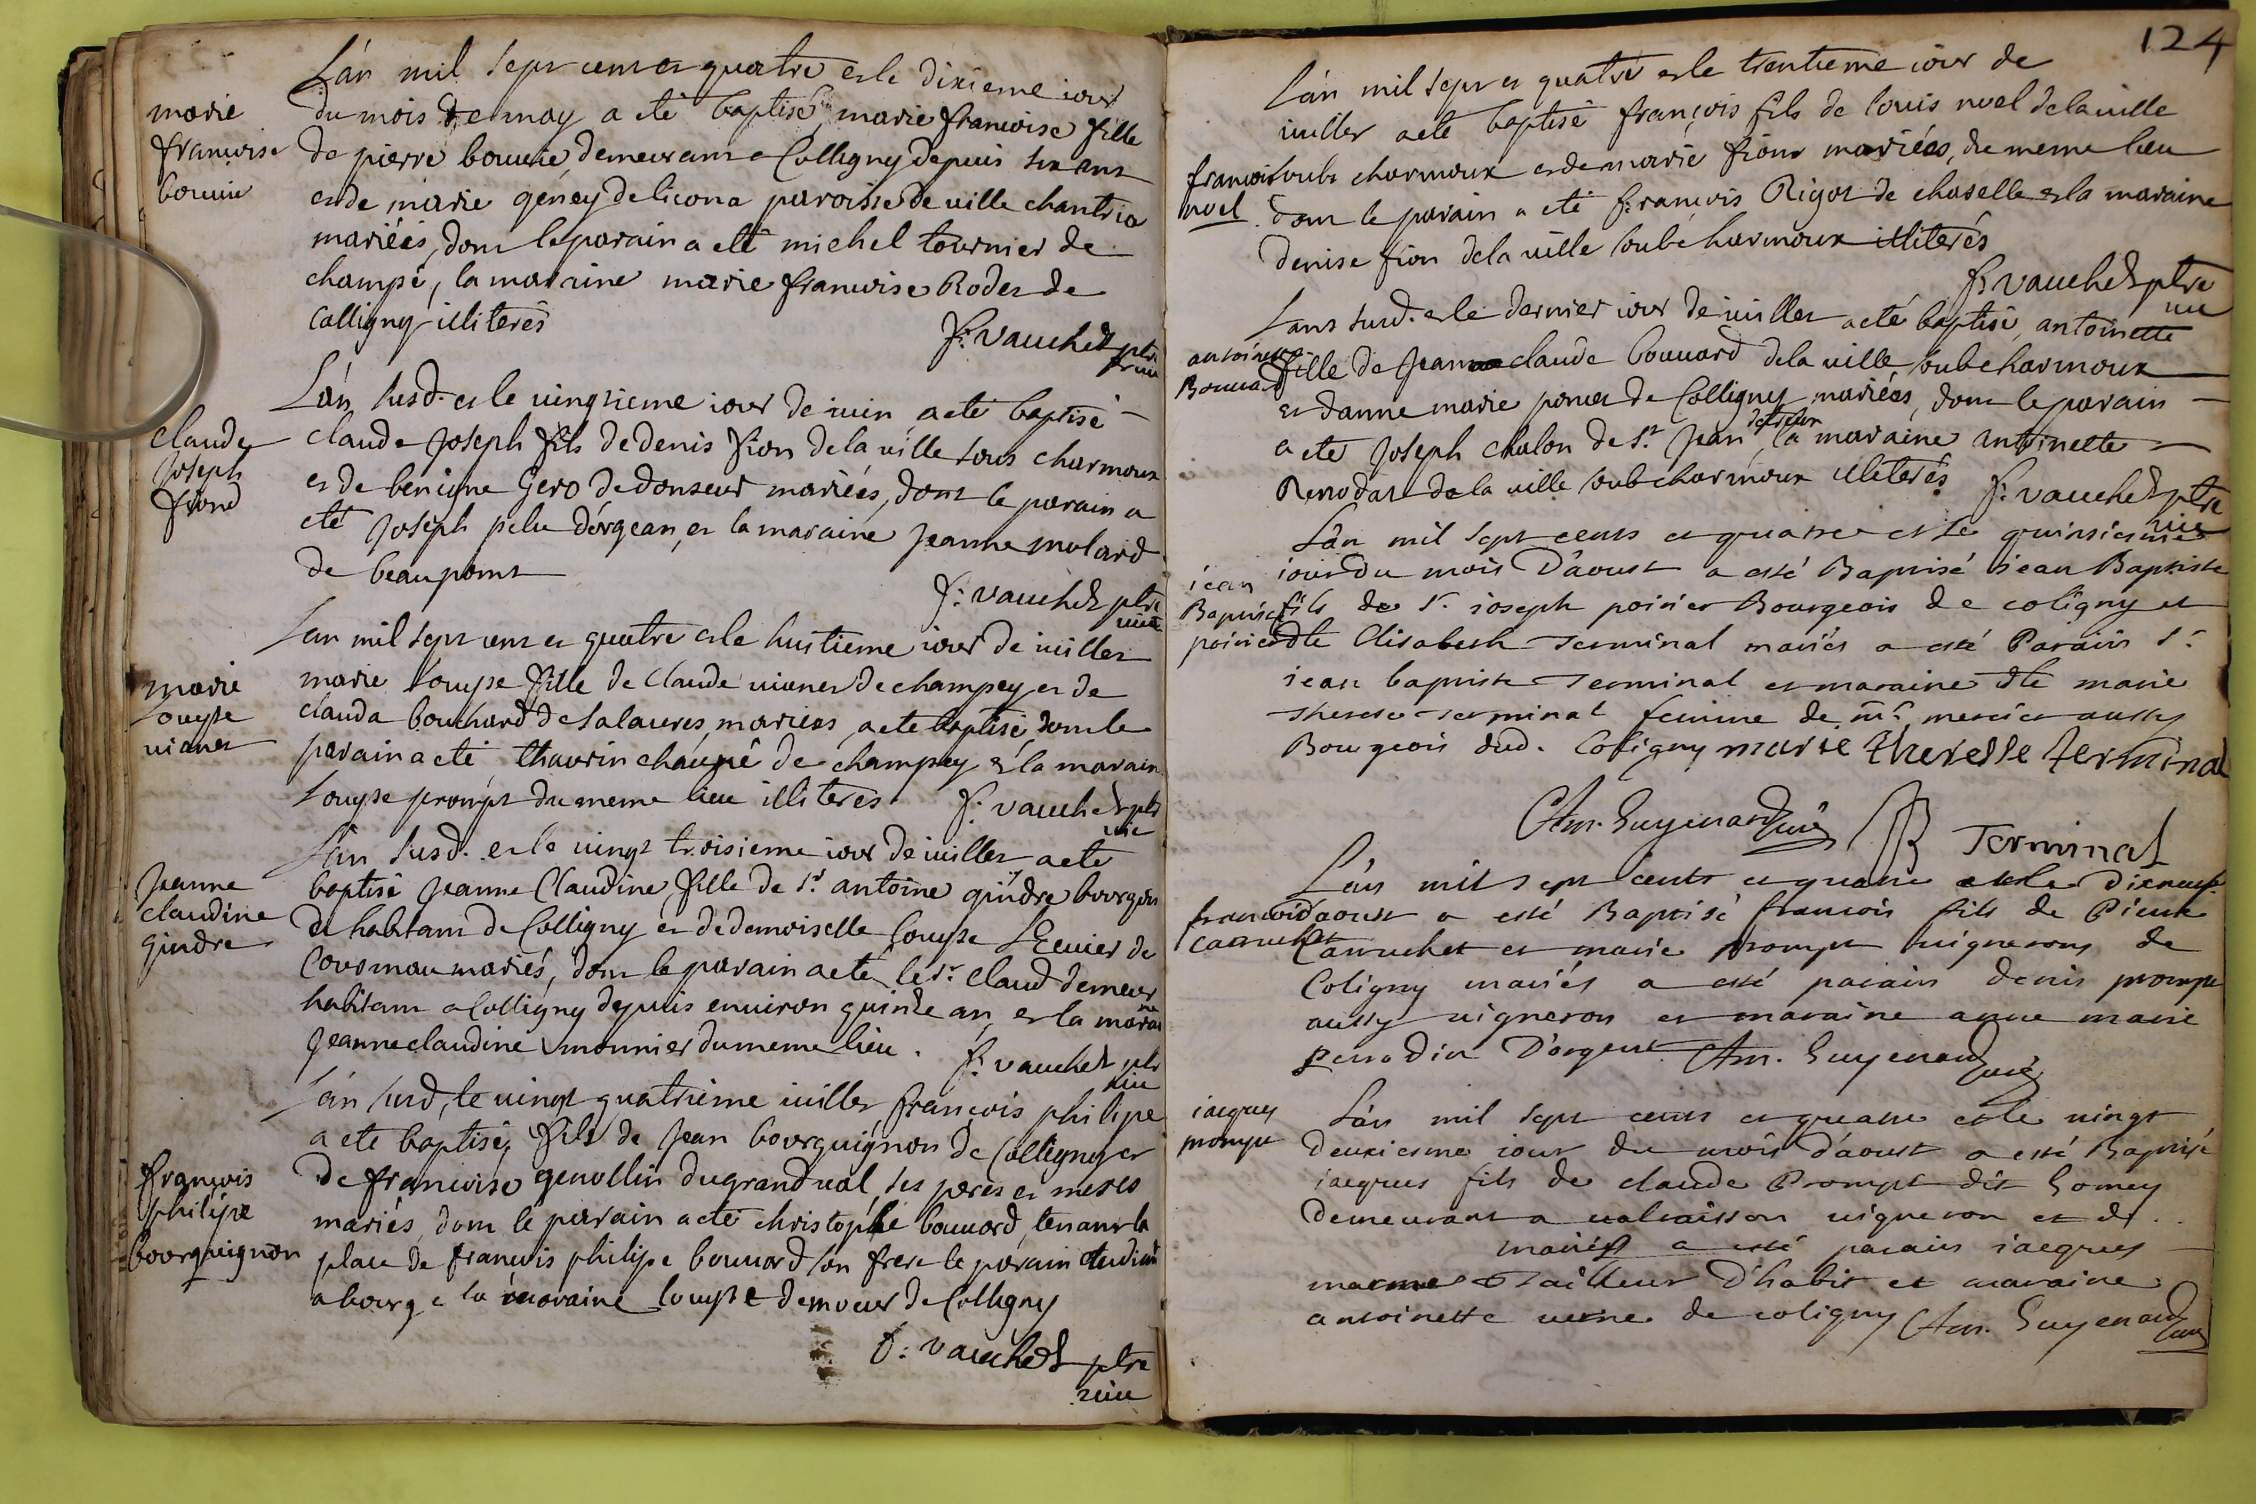 marie
francoise
bouuie
L'án mil sept cent et quatre et le dixieme iour
du mois de may a eté baptisé, marie francoise fille
de pierre bouuie demeurant a Colligny depuis six ans
et de marie géney de licona paroisse de ville chantria
mariées, dont le parain a eté michel tournier de
champé, la maraine marie francoise Rodet de
Colligny illiterés
f: vauchet ptre
L'án susd. et le uingtieme iour de iuin a eté baptisé
claude
Joseph
fiond
claude Joseph fils de denis fion de la uille sous charmoux
et de benigne Gero de donseur mariées, dont le parain a
eté Joseph pelu d'orgean, et la maraine Jeanne mulard
de beaupont
f: vauchet ptre
uic
L'an mil sept cent et quatre et le huitieme iour de iuillet
marie
Louyse
uianet
marie Louyse fille de claude uianet de champey et de
clauda bouchard de salaures, mariées, a eté baptisé, dont le
parain a eté thaurin chaupé de champey et la marain
Louyse prompt du meme lieu illiterés f: vauchet ptr
uic
L'án susd. et le uingt troisieme iour de iuillet a eté
Jeanne
claudine
gindre
baptisé Jeanne Claudine, fille de Sr. antoine gindre bourgois
et habitant de Colligny et de demoiselle Louyse
Cousmau mariés, dont le parain a eté le Sr. Claud demeur
habitant a Colligny depuis enuiron quinze an, et la marai
ne
Jeanne claudine monnier du meme lieu. f: vauchet ptr
uic
L'án susd, le uingt quatrieme iuillet françois philipe
a eté baptisé, fils de Jean bourguignon de Colligny et
françois
philipe
bourguignon
de francoise genollin du grand ual, ses peres et meres
mariés, dont le parain a eté christophle bouuard, tenant la
place de francois philipe bouuard son frere le parain etudiant
a bourg e la maraine Louyse demour de Colligny
f: vauchet ptre
uic
124
L'án mil sept et quatre et le trentieme iour de
iuillet a eté baptisé françois fils de louis noel de la uille
francois
noel
soubs charmoux et de marie fiont mariées, du meme lieu
dont le parain a eté françois Rigot de chaselle et la maraine
denise fion de la uille soub charmoux illiterés
f: vauchet ptre
uic
L'ans susd. et le dernier iour de iuillet a eté baptisé, antoinette
antoinette
Bouuard
fille de Jean claude bouuard de la uille soub charmoux
et danne marie ponet de Colligny mariées, dont le parain
a eté Joseph chalon de St. Jean, la maraine antoinette
Perrodat de la uille soub charmoux illiterés f: vauchet ptre
uic
L'án mil sept cents et quatre et le quinsiesme
iean
Baptiste
poirier
iour du mois D'aoust a esté Baptisé iean Baptiste
fils de Sr. ioseph poirier Bourgeois de coligny et
dlle Elisabeth Terminal mariés a esté Parain Sr.
iean baptiste Terminal et maraine dlle marie
therese terminal femme de mr. mercier aussy
Bourgeois dud. Coligny marie theresse terminal
Am. Guyenard curé JB Terminal
L'án mil sept cents et quatre et le dixneuf
francois
Carruchet
d'aoust a esté Baptisé francois fils de Pierre
Carruchet et marie prompt uignerons de
Coligny mariés a esté parain denis prompt
aussy uigneron et maraine anne marie
perrodin D'orgent Am. Guyenard curé
iacques
prompt
L'án mil sept cents et quatre et le uingt
deuxiesme iour du mois d'aoust a esté Baptisé
iacques fils de claude Prompt dit Gomey
demeurant a ualraisson uigneron et de ..
mariés a esté parain iacques
Tailleur d'habit et maraine
antoinette uerne de coligny Am. Guyenard curé